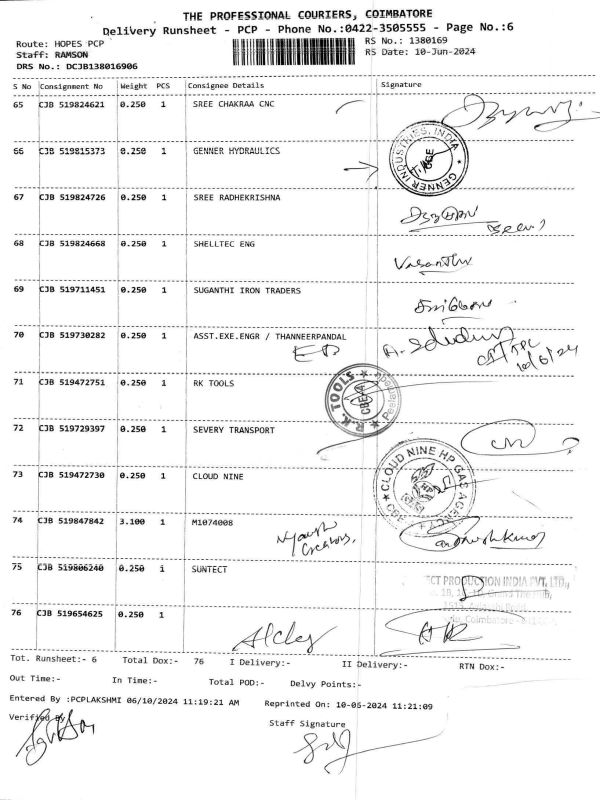 THE PROFESSIONAL COURIERS, COIMBATORE
Delivery Runsheet - PCP - Phone No.:0422-3505555 - Page No.:6
Route: HOPES PCP RS No.: 1380169
Staff: RAMSON RS Date: 10-Jun-2024
DRS No.: DCJB138016906
S No Consignment No Weight PCS Consignee Details Signature
65 CJB 519824621 0.250 1 SREE CHAKRAA CNC
66 CJB 519815373 0.250 1 GENNER HYDRAULICS
GENNER INDUSTRIES, INDIA ★ CBE
67 CJB 519824726 0.250 1 SREE RADHEKRISHNA
68 CJB 519824668 0.250 1 SHELLTEC ENG
Vasanthu
69 CJB 519711451 0.250 1 SUGANTHI IRON TRADERS
70 CJB 519730282 0.250 1 ASST.EXE.ENGR / THANNEERPANDAL
10/6/24
71 CJB 519472751 0.250 1 RK TOOLS
R.K. TOOLS ★ CBE-4
72 CJB 519729397 0.250 1 SEVERY TRANSPORT
73 CJB 519472730 0.250 1 CLOUD NINE
★ CLOUD NINE HP GAS AGENCY ★ CBE
74 CJB 519847842 3.100 1 M1074008
Creations,
75 CJB 519806240 0.250 1 SUNTECT
ECT PRODUCTION INDIA PVT. LTD.,
76 CJB 519654625 0.250 1
Tot. Runsheet:- 6 Total Dox:- 76 I Delivery:- II Delivery:- RTN Dox:-
Out Time:- In Time:- Total POD:- Delvy Points:-
Entered By :PCPLAKSHMI 06/10/2024 11:19:21 AM Reprinted On: 10-06-2024 11:21:09
Verified By Staff Signature